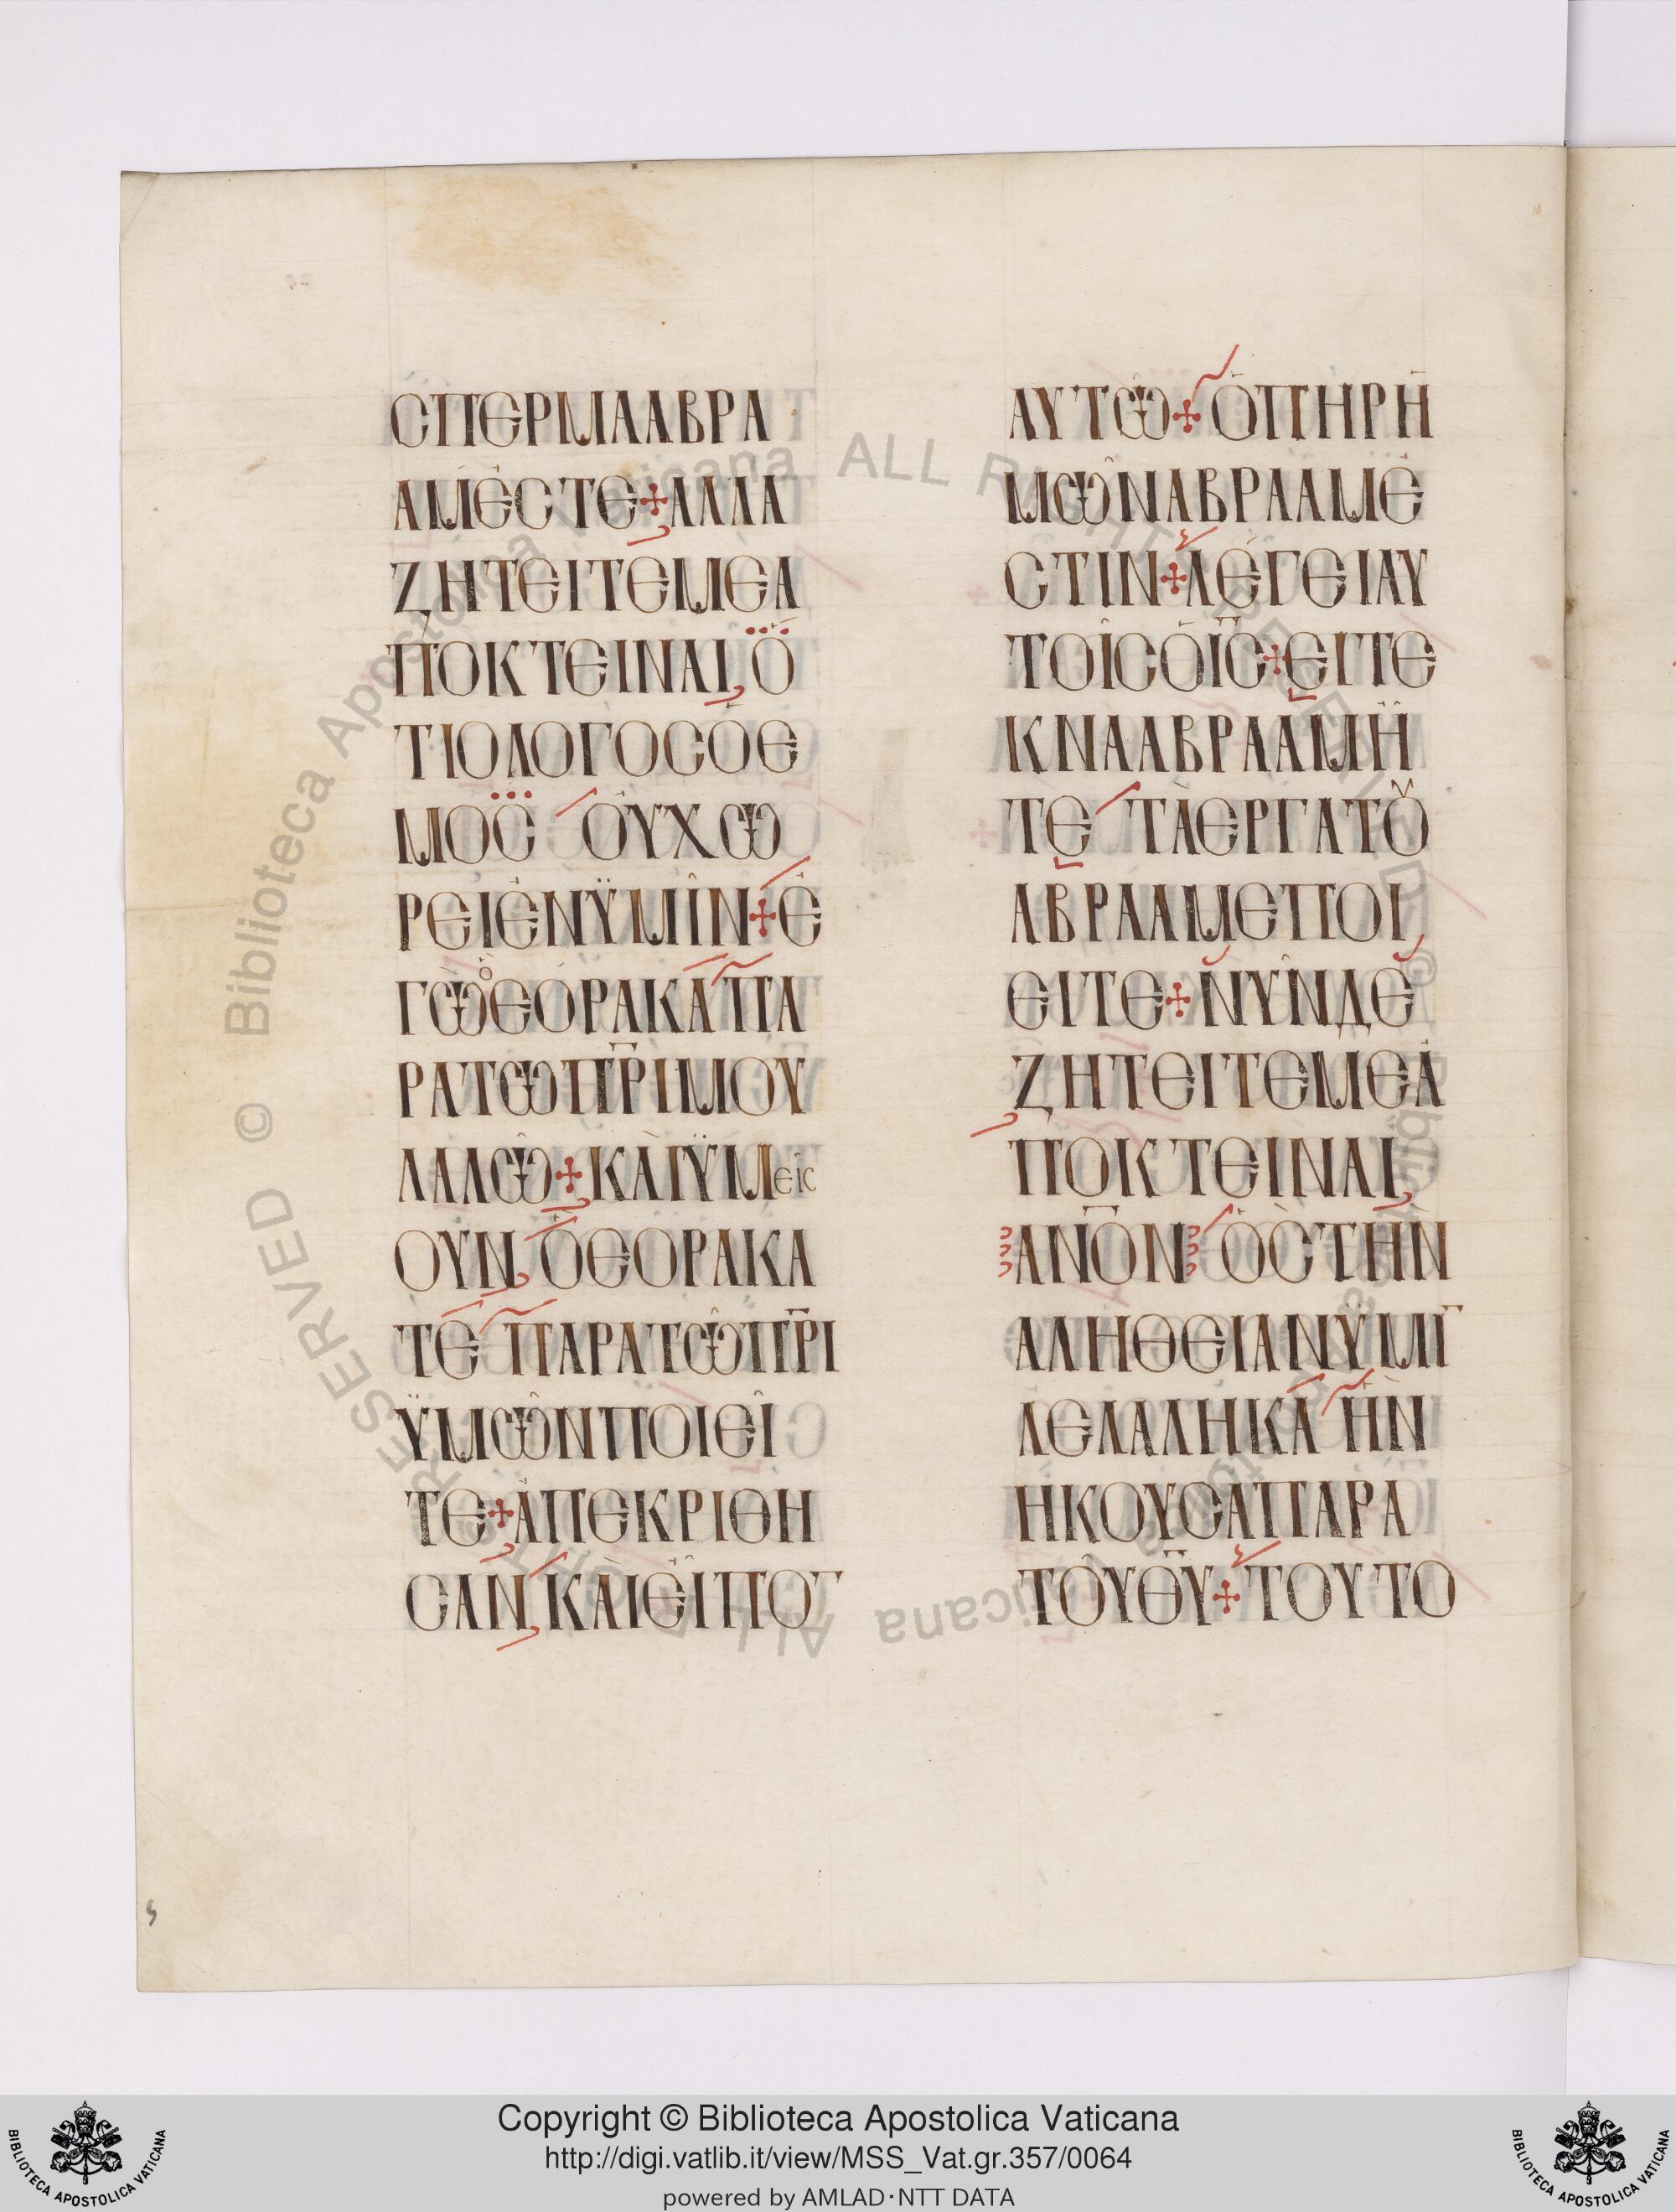 ϹΠΕΡΜΑΑΒΡΑ
ΑΜΕϹΤΕ+ΑΛΛΑ
ΖΗΤΕΙΤΕΜΕΑ
ΠΟΚΤΕΙΝΑΙΟ
ΤΙΟΛΟΓΟϹΟΕ
ΜΟϹ ΟΥΧΩ
ΡΕΙΕΝΫΜΙΝ+Ε
ΓΩΟΕΟΡΑΚΑΠΑ
ΡΑΤΩΠ̅Ρ̅ΙΜΟΥ
ΛΑΛΩ+ΚΑΙΫΜεις
ΟΥΝΟΕΟΡΑΚΑ
ΤΕ ΠΑΡΑΤΩΠ̅Ρ̅Ι
ΫΜΩΝΠΟΙΕΙ
ΤΕ+ΑΠΕΚΡΙΘΗ
ϹΑΝΚΑΙΕΙΠΟ̅
ΑΥΤΩ+ΟΠΗΡΗ
ΜΩΝΑΒΡΑΑΜΕ
ϹΤΙΝ+ΛΕΓΕΙΑΥ
ΤΟΙϹΟΙ̅Ϲ̅+ΕΙΤΕ
ΚΝΑΑΒΡΑΑΜΗ
ΤΕ ΤΑΕΡΓΑΤȢ
ΑΒΡΑΑΜΕΠΟΙ
ΕΙΤΕ+ΝΥΝΔΕ
ΖΗΤΕΙΤΕΜΕΑ
ΠΟΚΤΕΙΝΑΙ
ΑΝ̅Ο̅Ν ΟϹΤΗΝ
ΑΛΗΘΕΙΑΝΫΜΙ̅
ΛΕΛΑΛΗΚΑ ΗΝ
ΗΚΟΥϹΑΠΑΡΑ
ΤΟΥΘ̅Υ̅+ΤΟΥΤΟ
© Biblioteca Apostolica Vaticana ALL RIGHTS RESERVED
Copyright © Biblioteca Apostolica Vaticana
http://digi.vatlib.it/view/MSS_Vat.gr.357/0064
powered by AMLAD·NTT DATA
BIBLIOTECA APOSTOLICA VATICANA
BIBLIOTECA APOSTOLICA VATICANA